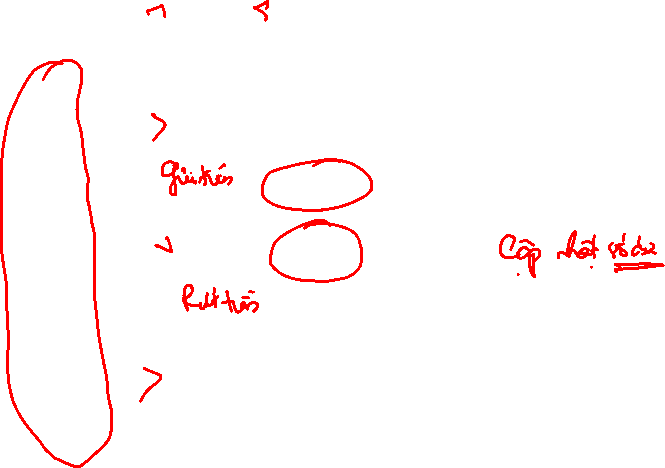 Gửi tiền
Rút tiền
Cập nhật số dư